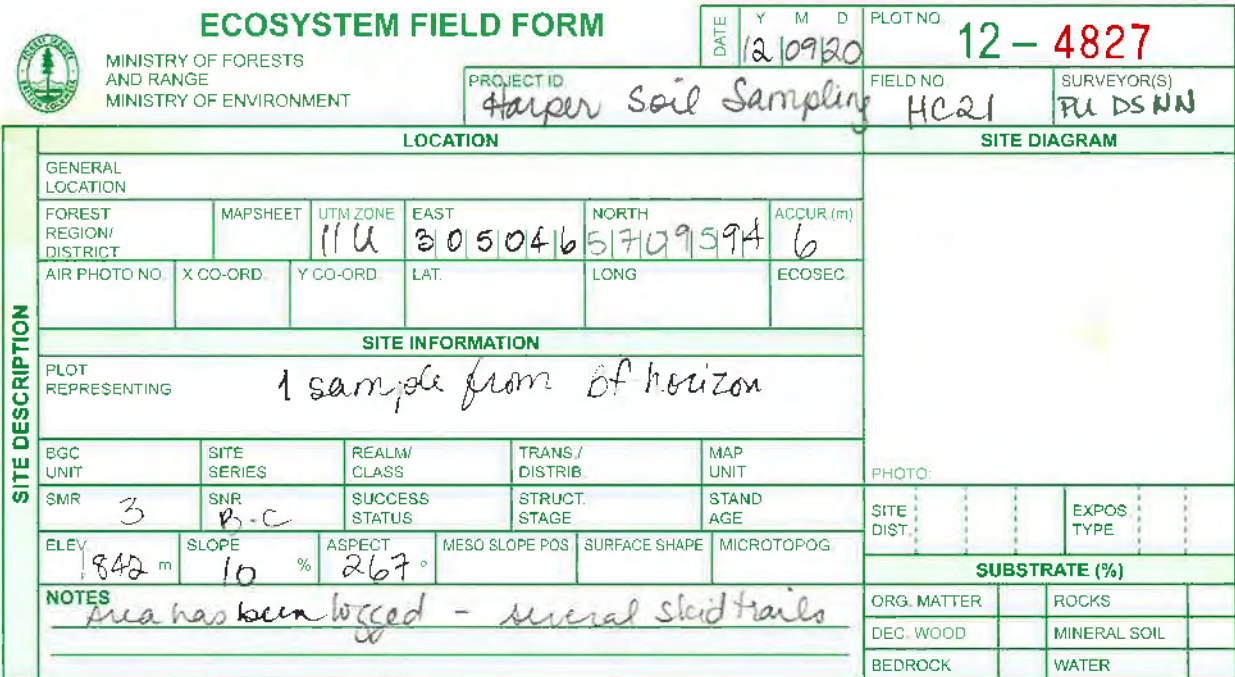 ECOSYSTEM FIELD FORM
MINISTRY OF FORESTS
AND RANGE
MINISTRY OF ENVIRONMENT
DATE Y M D
12 09 20
PLOT NO.
12 – 4827
PROJECT ID.
Harper Soil Sampling
FIELD NO.
HC21
SURVEYOR(S)
PU DS NN
SITE DESCRIPTION
LOCATION
SITE DIAGRAM
GENERAL
LOCATION
FOREST
REGION/
DISTRICT
MAPSHEET
UTM ZONE
11 U
EAST
305046
NORTH
5709594
ACCUR.(m)
6
AIR PHOTO NO.
X CO-ORD.
Y CO-ORD.
LAT.
LONG
ECOSEC.
SITE INFORMATION
PLOT
REPRESENTING
1 sample from Bf horizon
BGC
UNIT
SITE
SERIES
REALM/
CLASS
TRANS./
DISTRIB.
MAP
UNIT
PHOTO:
SMR 3
SNR
B-C
SUCCESS
STATUS
STRUCT.
STAGE
STAND
AGE
SITE
DIST.
EXPOS.
TYPE
ELEV.
842 m
SLOPE
10 %
ASPECT
267 °
MESO SLOPE POS
SURFACE SHAPE
MICROTOPOG.
SUBSTRATE (%)
NOTES
Area has been logged - several skid trails
ORG. MATTER
ROCKS
DEC. WOOD
MINERAL SOIL
BEDROCK
WATER